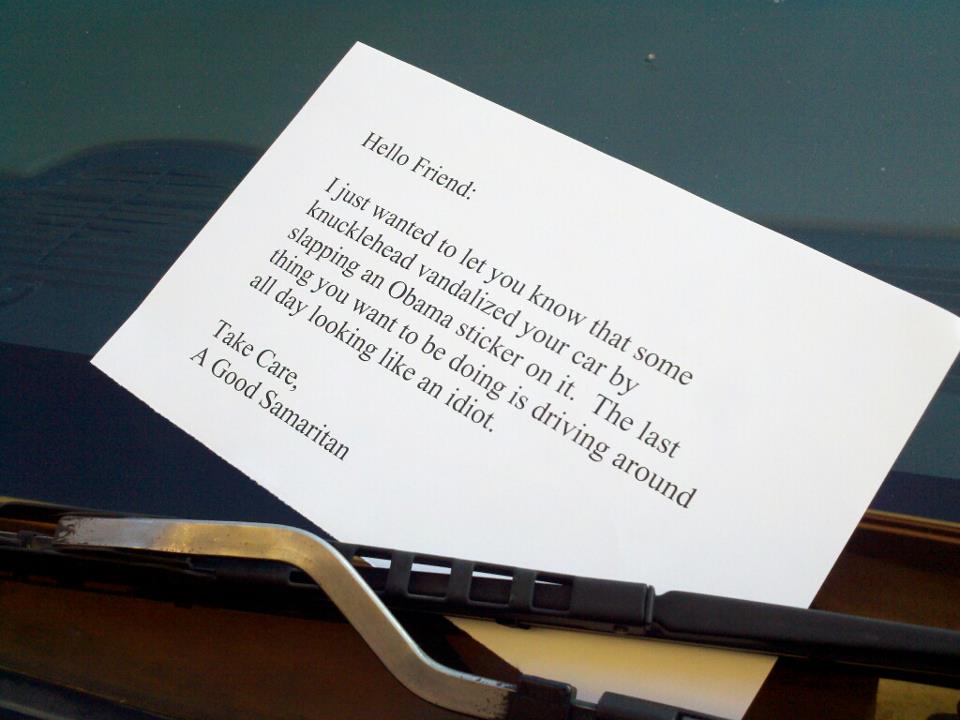 Hello Friend:
I just wanted to let you know that some
knucklehead vandalized your car by
slapping an Obama sticker on it.  The last
thing you want to be doing is driving around
all day looking like an idiot.
Take Care,
A Good Samaritan